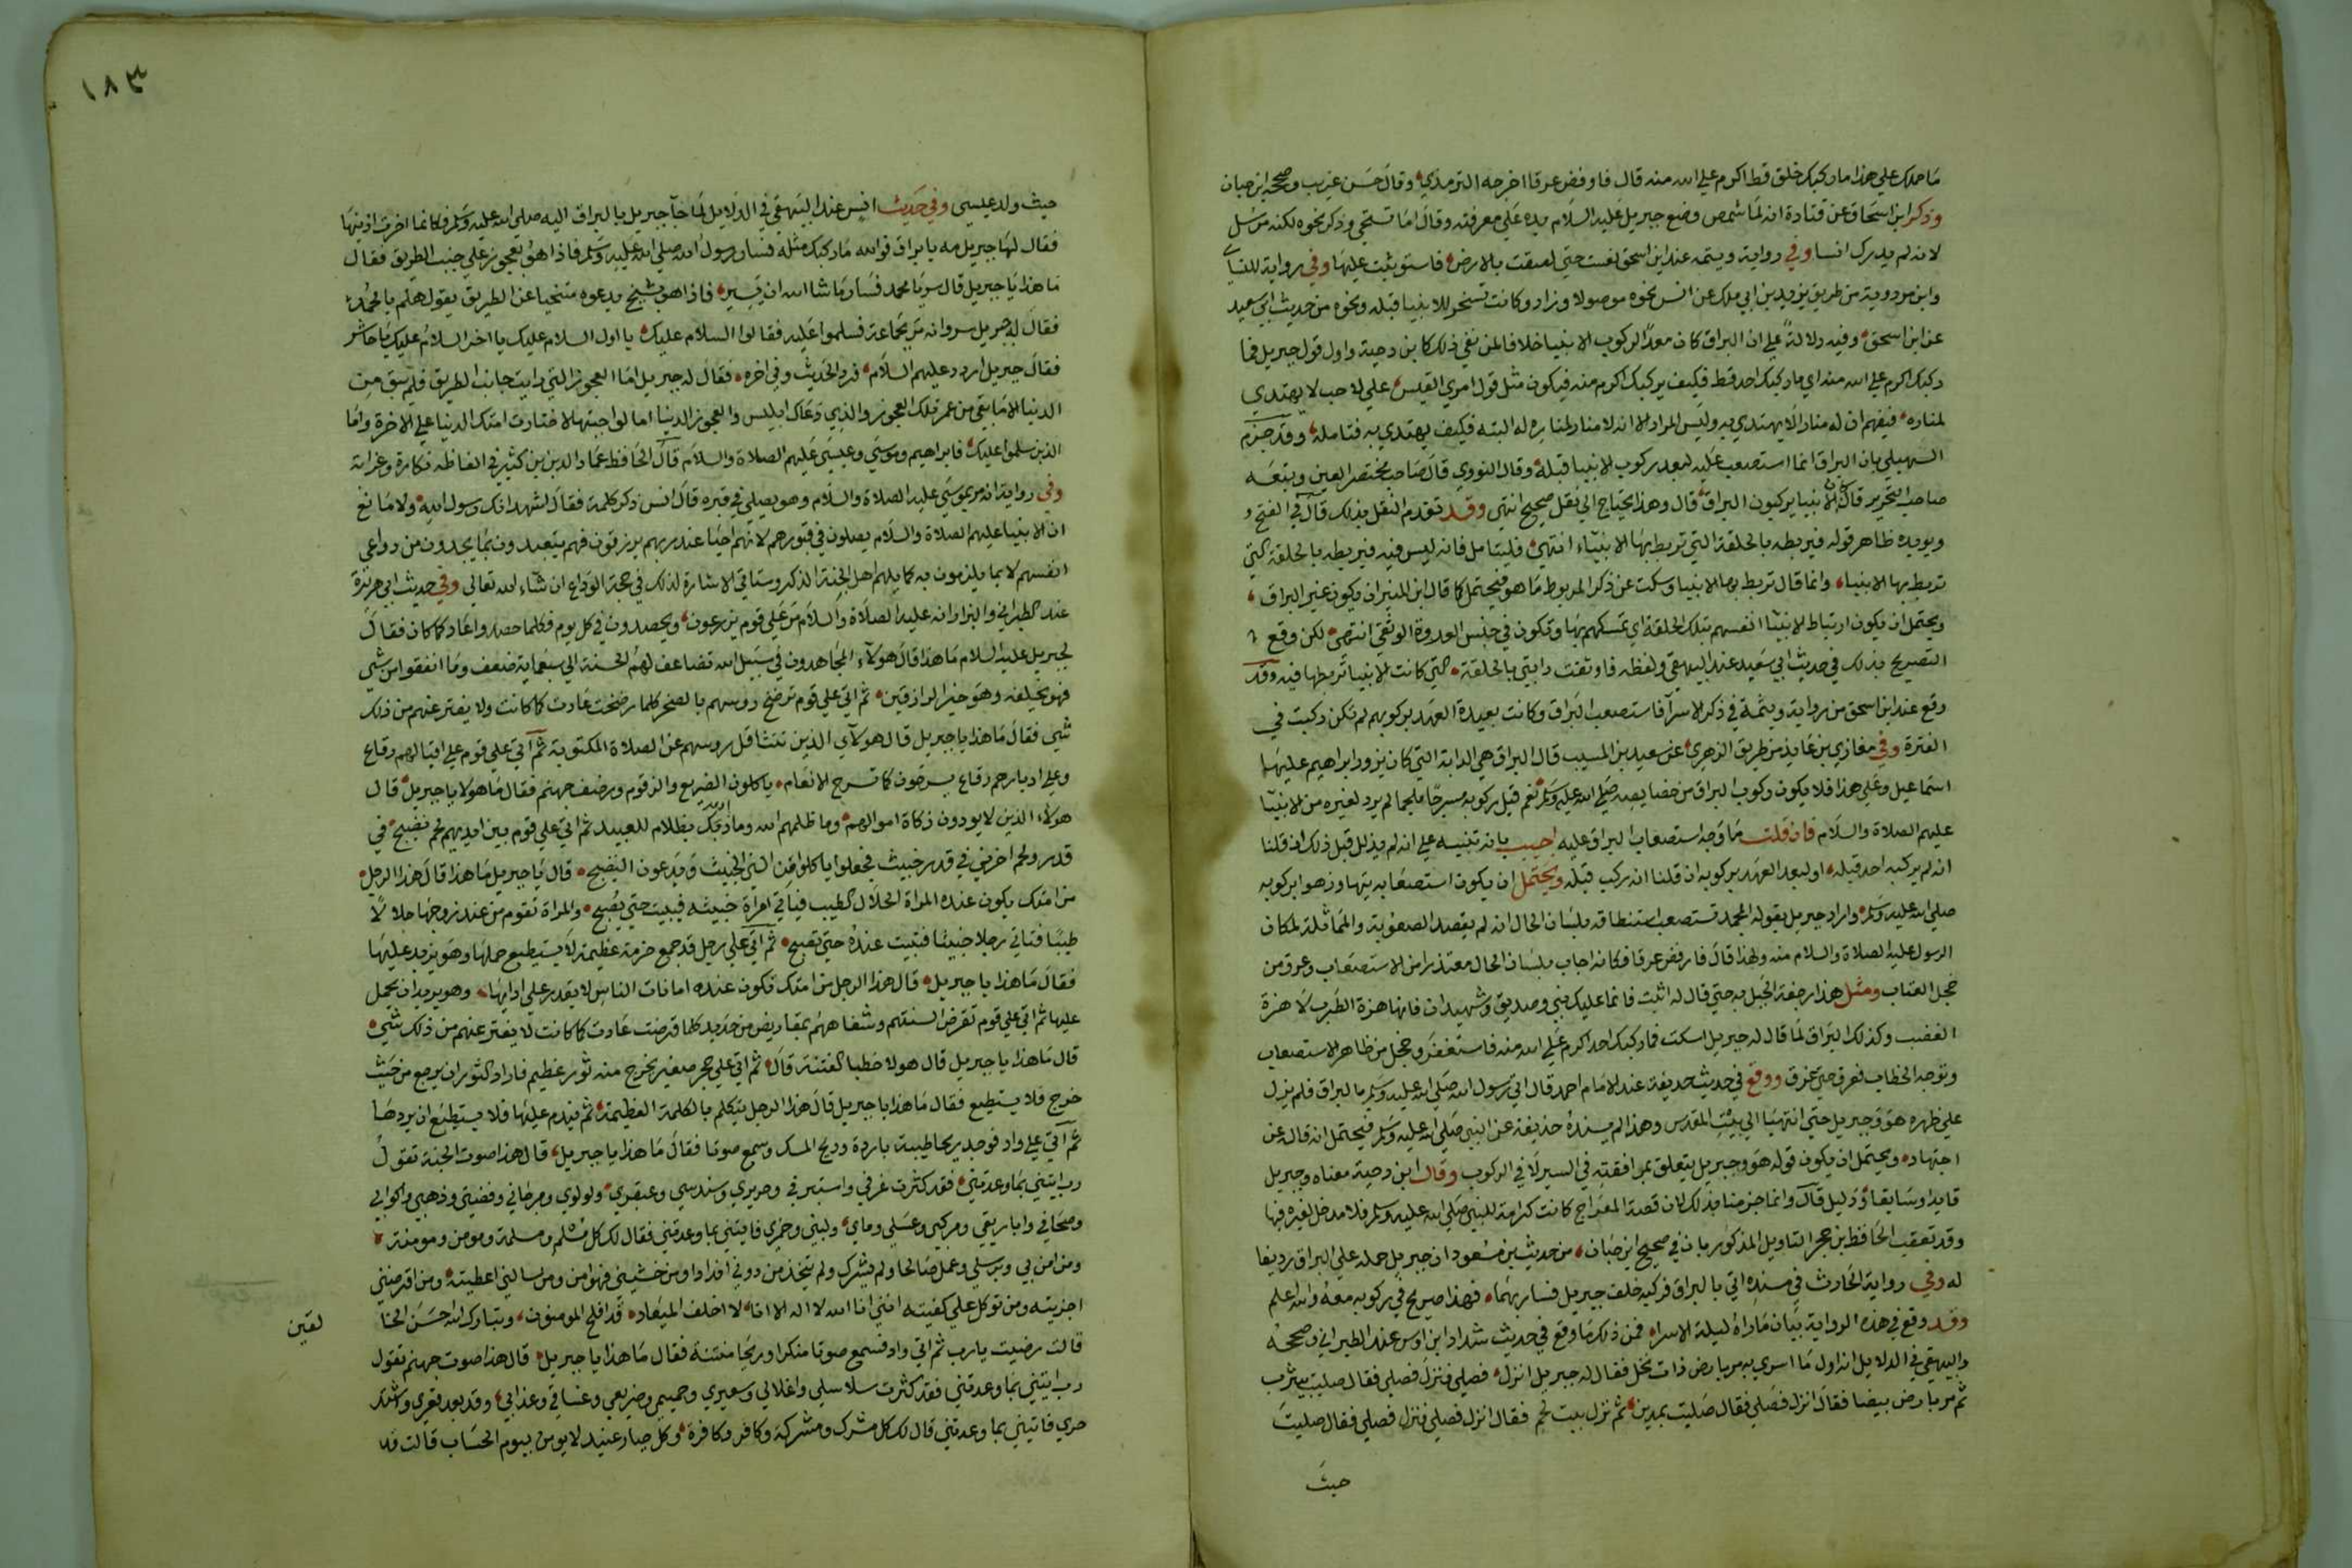 ما حملك على هذا ما ركبك خلق قط اكرم على الله منه قال فارفض عرقا اخرجه الترمذي وقال حسن غريب وصححه ابن حبان
وذكر ابن اسحاق عن قتادة انه لما شمس وضع جبريل عليه السلام يده على معرفته وقال اما تستحي وذكر نحوه لكنه مرسل
لانه لم يدرك انسا وفي رواية وثيمه عند ابن اسحق تعست حتى لصقت بالارض فاستويت عليها وفي رواية للنساي
وابن مردويه من طريق يزيد بن ابي ملك عن انس نحوه موصولا وزاد وكانت تسخر للانبيا قبله ونحوه من حديث ابي سعيد
عند ابن اسحق وفيه دلالة على ان البراق كان معدا لركوب الانبيا خلافا لمن نفي ذلك كابن دحية واول قول جبريل فما
ركبك اكرم على الله منه اي ما ركبك احد قط فكيف يركبك اكرم منه فيكون مثل قول امري القيس على لاحب لا يهتدي
لمناره فيفهم ان له منارا لا يهتدي به وليس المراد الا انه لا منار له البته فكيف يهتدي به فتامله وقد جزم
السهيلي بان البراق انما استصعب عليه لبعد ركوب الانبيا قبله وقال النووي قال صاحب مختصر العين وتبعه
صاحب التحرير كان الانبيا يركبون البراق قال وهذا يحتاج الى نقل صحيح انتهى وقد تقدم النقل بذلك قال في الفتح و
ويويده ظاهر قوله فربطه بالحلقة التي تربط بها الانبياء انتهى فليتامل فانه ليس فيه فربطه بالحلقة التي
تربط بها الانبياء وانما قال تربط بها الانبيا وسكت عن ذكر المربوط ما هو فيحتمل كما قال ابن المنير ان يكون غير البراق
ويحتمل ان يكون ارتباط الانبيا انفسهم بتلك الحلقة اي تمسكهم بها وتكون في جنس العروة الوثقى انتهى لكن وقع
التصريح بذلك في حديث ابي سعيد عند البيهقي ولفظه فاوثقت دابتي بالحلقة التي كانت الانبيا تربطها فيه وقد
وقع عند ابن اسحق من رواية وثيمة في ذكر الاسرآ فاستصعب البراق وكانت بعيدة العهد بركوبهم لم تكن ركبت في
الفترة وفي مغازي بن عايذ من طريق الزهري عن سعيد بن المسيب قال البراق هي الدابة التي كان يزور ابراهيم عليها
اسماعيل وعلى هذا فلا يكون ركوب البراق من خصايصه صلى الله عليه وسلم نعم قيل ركوبه مسرجا ملجما لم يرد لغيره من الانبيا
عليهم الصلاة والسلام فان قلت ما وجه استصعاب البراق عليه اجيب بانه تنبيه على انه لم يذلل قبل ذلك ان قلنا
انه لم يركبه احد قبله او لبعد العهد بركوبه ان قلنا انه ركب قبله ويحتمل ان يكون استصعابه تيها وزهوا بركوبه
صلى الله عليه وسلم واراد جبريل بقوله ابمحمد تستصعب استنطاقه بلسان الحال انه لم يقصد الصعوبة وانما ثلة لمكان
الرسول عليه الصلاة والسلام منه ولهذا قال فارفض عرقا فكانه اجاب بلسان الحال معتذرا من الاستصعاب وعرق من
خجل العتاب ومثل هذا رجفة الجبل به حتى قال له اثبت فانما عليك نبي وصديق وشهيدان فانها هزة الطرب لا هزة
الغضب وكذلك البراق لما قال له جبريل اسكت فما ركبك احد اكرم على الله منه فاستغفر وخجل من ظاهر الاستصعاب
وتوجه الخطاب فعرق حتى غرق ووقع في حديث حذيفة عند الامام احمد قال اتي رسول الله صلى الله عليه وسلم بالبراق فلم يزل
على ظهره هو وجبريل حتى انتهيا الى بيت المقدس وهذا لم يسنده حذيفة عن النبي صلى الله عليه وسلم فيحتمل انه قال عن
اجتهاد ويحتمل ان يكون قوله هو وجبريل يتعلق بمرافقته في السير لا في الركوب وقال ابن دحية معناه وجبريل
قايد او سايق او دليل قال وانما جزمنا بذلك لان قصة المعراج كانت كرامة للنبي صلى الله عليه وسلم فلا مدخل لغيره فيها
وقد تعقب الحافظ بن حجر التاويل المذكور بان في صحيح ابن حبان من حديث بن مسعود ان جبريل حمله على البراق رديفا
له وفي رواية الحارث في مسنده اتي بالبراق فركبه خلف جبريل فسار بهما فهذا صريح في ركوبه معه والله اعلم
وقد وقع في هذه الرواية بيان ما راه ليلة الاسرا فمن ذلك ما وقع في حديث شداد ابن اوس عند الطبراني وصححه
والبيهقي في الدلايل انه اول ما اسري به مر بارض ذات نخل فقال له جبريل انزل فصلي فنزل فصلي فقال صليت بيثرب
ثم مر بارض بيضا فقال انزل فصلي فقال صليت بمدين ثم نزل ببيت لحم فقال انزل فصلي فنزل فصلي فقال صليت
حيث
١٨٣
حيث ولد عيسى وفي حديث انس عند البيهقي في الدلايل لما جآ جبريل بالبراق اليه صلى الله عليه وسلم فكانما اخرت اذنيها
فقال لها جبريل مه يا براق فوالله ما ركبك مثله فسار رسول الله صلى الله عليه وسلم فاذا هو بعجوز على جنب الطريق فقال
ما هذا يا جبريل قال سر يا محمد فسار ما شا الله ان يسير فاذا هو بشيخ يدعوه متنحيا عن الطريق يقول هلم يا محمد
فقال له جبريل سر وانه مر بجماعة فسلموا عليه فقالوا السلام عليك يا اول السلام عليك يا اخر السلام عليك يا حاشر
فقال جبريل اردد عليهم السلام فرد الحديث وفي اخره فقال له جبريل اما العجوز التي رايت جانب الطريق فلم يبق من
الدنيا الا ما بقي من عمر تلك العجوز والذي دعاك ابليس والعجوز الدنيا اما لو اجبتها لاختارت امتك الدنيا على الاخرة واما
الذين سلموا عليك فابراهيم وموسى وعيسى عليهم الصلاة والسلام قال الحافظ عماد الدين بن كثير في الفاظه نكارة وغرابة
وفي رواية انه مر بموسى عليه الصلاة والسلام وهو يصلي في قبره قال انس ذكر كلمة فقال اشهد انك رسول الله ولا مانع
ان الانبيا عليهم الصلاة والسلام يصلون في قبورهم لانهم احيا عند ربهم يرزقون فهم يتعبدون بما يجدون من دواعي
انفسهم لا بما يلزمون به كما يلهم اهل الجنة الذكر وستاتي الاشارة لذلك في حجة الوداع ان شاء الله تعالى وفي حديث ابي هريرة
عند الطبراني والبزار انه عليه الصلاة والسلام مر على قوم يزرعون ويحصدون في كل يوم فكلما حصدوا عاد كما كان فقال
لجبريل عليه السلام ما هذا قال هولآء المجاهدون في سبيل الله تضاعف لهم الحسنة الى سبعماية ضعف وما انفقوا من شي
فهو يخلفه وهو خير الرازقين ثم اتى على قوم ترضخ روسهم بالصخر كلما رضخت عادت كما كانت ولا يفتر عنهم من ذلك
شي فقال ما هذا يا جبريل قال هولآي الذين تتثاقل روسهم عن الصلاة المكتوبة ثم اتي على قوم على اقبالهم رقاع
وعلى ادبارهم رقاع يسرحون كما تسرح الانعام ياكلون الضريع والزقوم ورضف جهنم فقال ما هولا يا جبريل قال
هولاء الذين لا يودون زكاة اموالهم وما ظلمهم الله وما ربك بظلام للعبيد ثم اتى على قوم بين ايديهم لحم نضيج في
قدر ولحم اخر ني في قدر خبيث فجعلوا ياكلون من الني الخبيث ويدعون النضيج قال يا جبريل ما هذا قال هذا الرجل
من امتك يكون عنده المراة الحلال الطيب فياتي امراة خبيثه فيبيت حتى يصبح والمراة تقوم من عند زوجها حلالا
طيبا فتاتي رجلا خبيثا فتبيت عنده حتى تصبح ثم اتى على رجل قد جمع حزمة عظيمة لا يستطيع حملها وهو يزيد عليها
فقال ما هذا يا جبريل قال هذا الرجل من امتك تكون عنده امانات الناس لا يقدر على ادايها وهو يريد ان يحمل
عليها ثم اتى على قوم تقرض السنتهم وشفاههم بمقاريض من حديد كلما قرضت عادت كما كانت لا يفتر عنهم من ذلك شي
قال ما هذا يا جبريل قال هولا خطبا الفتنة قال ثم اتى على حجر صغير يخرج منه ثور عظيم فاراد الثور ان يرجع من حيث
خرج فلا يستطيع فقال ما هذا يا جبريل قال هذا الرجل يتكلم بالكلمة العظيمة ثم يندم عليها فلا يستطيع ان يردها
ثم اتى على واد فوجد ريحا طيبة باردة وريح المسك وسمع صوتا فقال ما هذا يا جبريل قال هذا صوت الجنة تقول
رب ايتني بما وعدتني فقد كثرت غرفي واستبرقي وحريري وسندسي وعبقري ولولوي ومرجاني وفضتي وذهبي واكوابي
وصحافي واباريقي ومركبي وعسلي وماي ولبني وخمري فايتني بما وعدتني فقال لك كل مسلم ومسلمة ومومن ومومنة
ومن امن بي وبرسلي وعمل صالحا ولم يشرك ولم يتخذ من دوني اندادا ومن خشيني فهو امن ومن سالني اعطيته ومن اقرضني
اجزيته ومن توكل على كفيته انني انا الله لا اله الا انا لا اخلف الميعاد قد افلح المومنون وتبارك الله احسن الخا
لقين
قالت رضيت يا رب ثم اتى واد فسمع صوتا منكرا وريحا منتنة فقال ما هذا يا جبريل قال هذا صوت جهنم تقول
رب ايتني بما وعدتني فقد كثرت سلاسلي واغلالي وسعيري وحميمي وضريعي وغساقي وعذابي وقد بعد قعري واشتد
حري فاتيني بما وعدتني قال لك كل مشرك ومشركة وكافر وكافرة وكل جبار عنيد لا يومن بيوم الحساب قالت قد